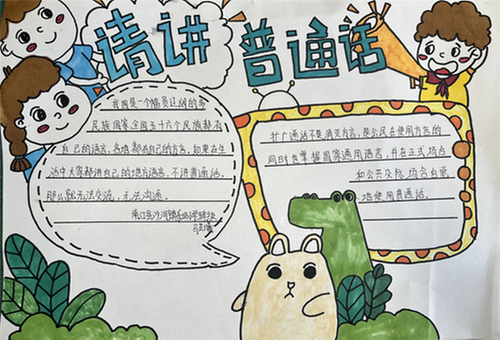 请讲普通话
我国是一个幅员辽阔的多
民族国家,全国五十六个民族都有
自己的语言,各地都有自己的方言,如果在生
活中大家都讲自己的地方语言,不讲普通话,
那么就无法交流,无法沟通。
推广普通话不是消灭方言,是公民在使用方言的
同时也掌握国家通用语言,并在正式场合
和公共交际场合自觉
地使用普通话。